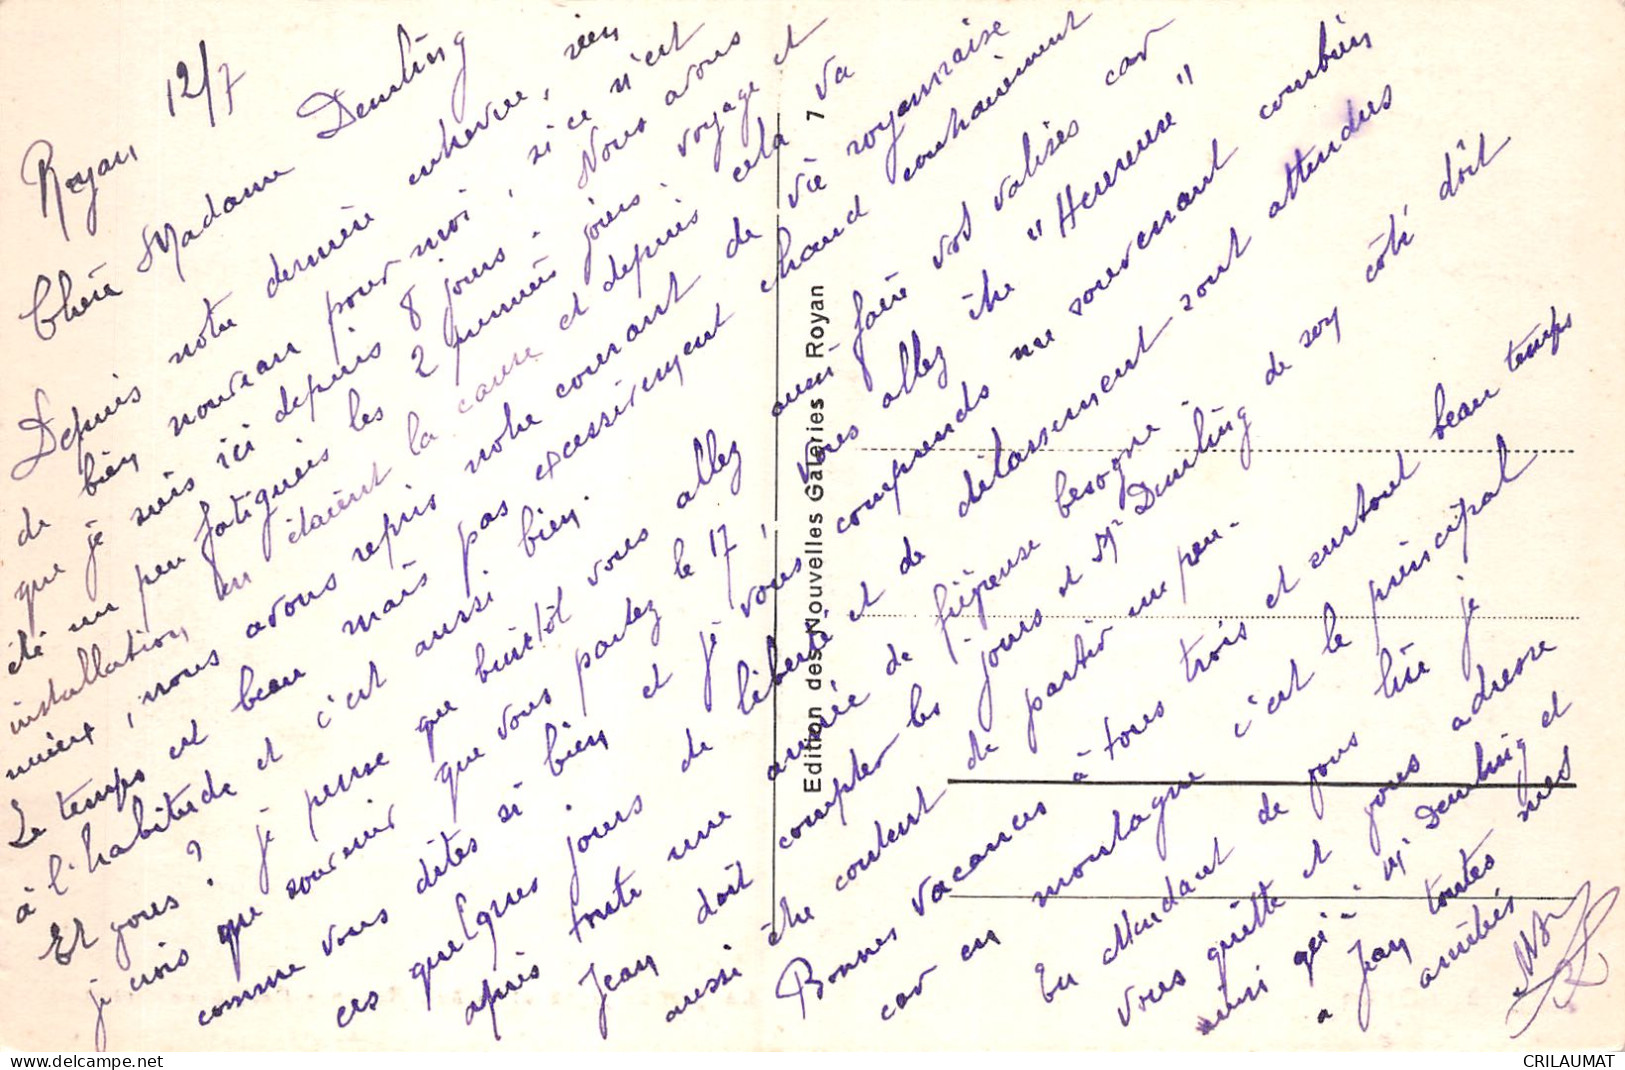 Royan 12/7
Chère Madame Demling
Depuis notre dernière entrevue, rien
de bien nouveau pour moi, si ce n'est
que je suis ici depuis 8 jours. Nous avons
été un peu fatigués les 2 premiers jours, voyage et
installation en étaient la cause et depuis cela va
mieux, nous avons repris notre courant de vie royannaise
Le temps est beau mais pas excessivement chaud contrairement
à l'habitude et c'est aussi bien.
Et vous ? je pense que bientôt vous allez aussi faire vos valises car
je crois que souvenir que vous partez le 17, vous allez être "Heureuse"
comme vous dites si bien et je vous comprends me souvenant combien
ces quelques jours de liberté et de délassement sont attendus
après toute une année de fiévreuse besogne.
Jean doit compter les jours et Mr Demling de son côté doit
aussi être content de partir un peu.
Bonnes vacances à tous trois et surtout beau temps
car en montagne c'est le principal
En attendant de vous lire je
vous quitte et vous adresse
ainsi qu'à Mr Demling et
a Jean toutes mes
amitiés
Edition des Nouvelles Galeries Royan 7
delcampe.net
CRILAUMAT